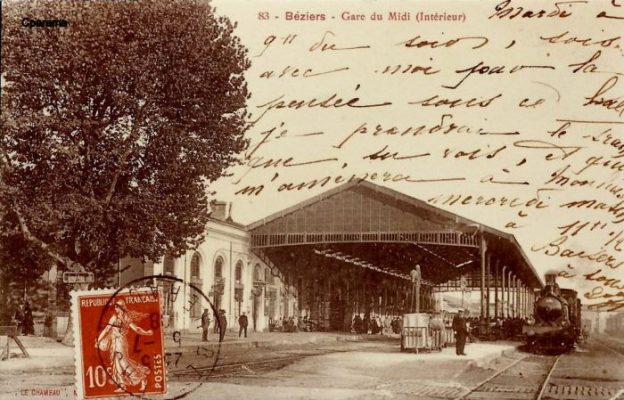 Cparama
83 - Béziers - Gare du Midi (Intérieur)
Mardi à
9h du soir, sois
avec moi par la
pensée sous ce hall
je prendrai le train
que tu vois, et qui
m'amènera à
mercredi
à 11h
à
REPUBLIQUE FRANÇAISE
10c
POSTES
"LE CHAMEAU",